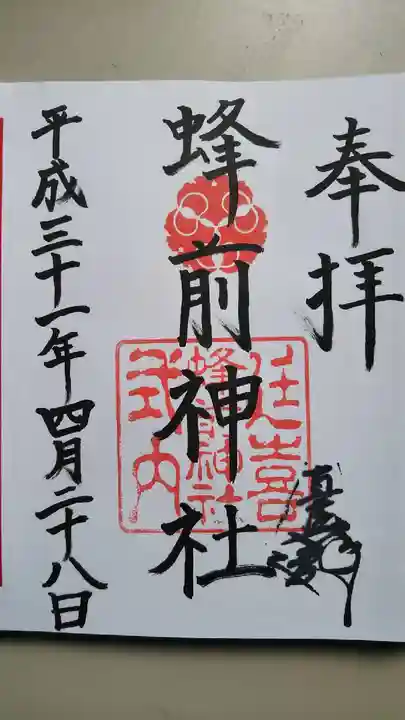 奉拝
蜂前神社
延喜
蜂前神社
式内
平成三十一年四月二十八日